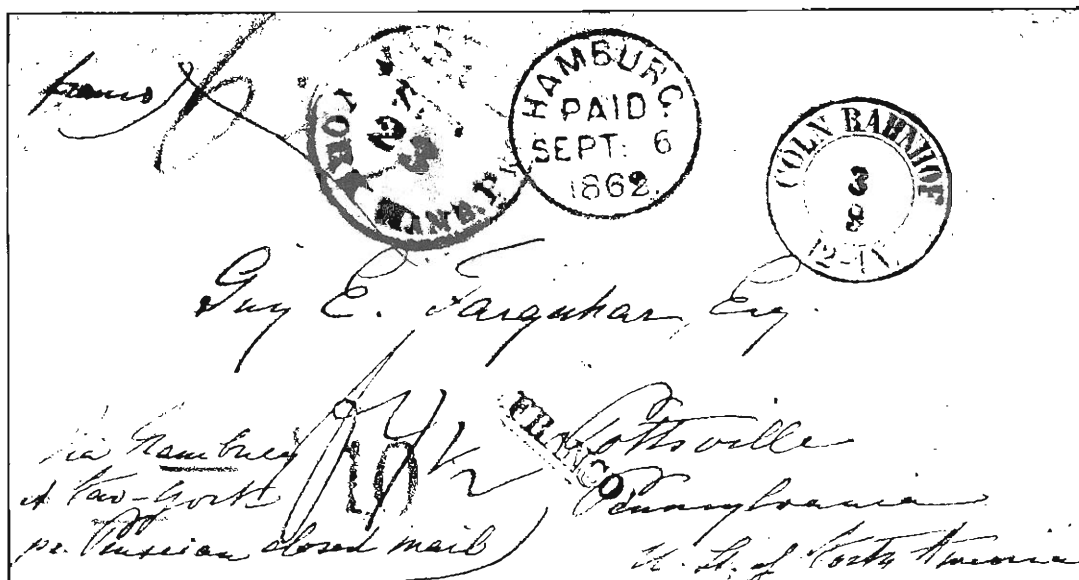 franco
HAMBURG.
PAID
SEPT: 6
1862.
YORK HAM. P
COLN BAHNHOF
3
8
12-1 N.
Guy E. Farquhar, Esq.
FRANCO
Pottsville
Pennsylvania
U. St. of North America
10
via Hamburg
& New-York
pr. Prussian closed mail